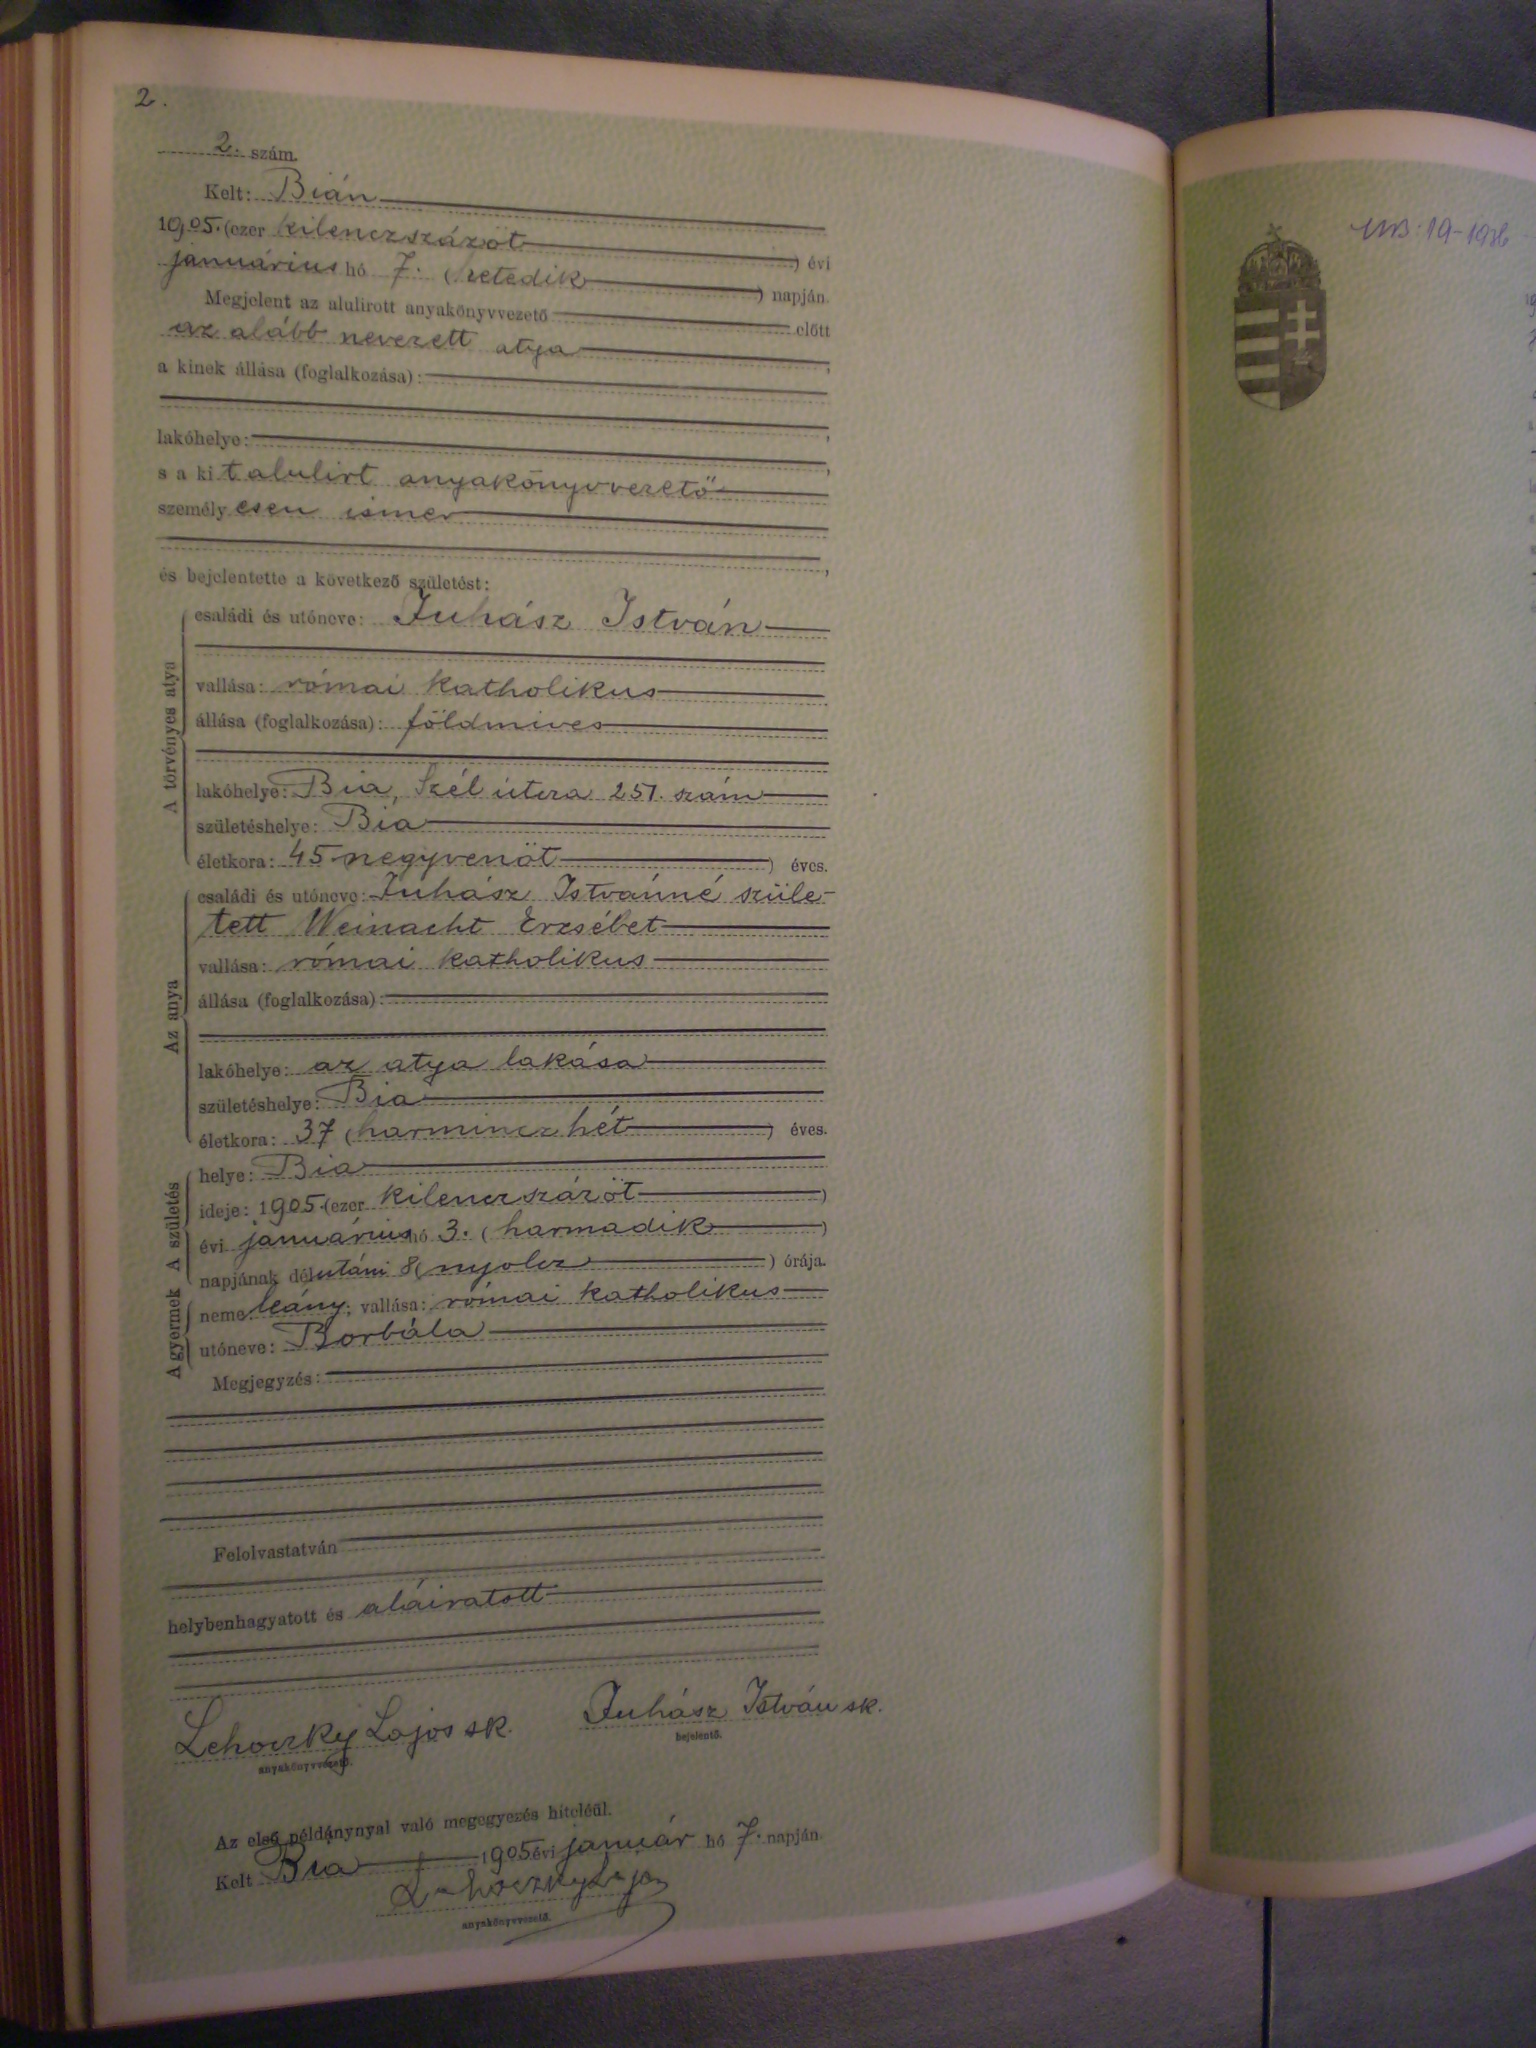 2.
2. szám.
Kelt: Bián
1905. (ezer kilenczszázöt ) évi
januárius hó 7. (hetedik ) napján.
Megjelent az alulirott anyakönyvvezető előtt
az alább nevezett atya ,
a kinek állása (foglalkozása):
lakóhelye: ,
s a kit alulirt anyakönyvvezető
személyesen ismer ,
és bejelentette a következő születést:
A törvényes atya
családi és utóneve: Juhász István
vallása: római katholikus
állása (foglalkozása): földmives
lakóhelye: Bia, Szél utcza 251. szám
születéshelye: Bia
életkora: 45 negyvenöt ) éves.
Az anya
családi és utóneve: Juhász Istvánné szüle-
tett Weinacht Erzsébet
vallása: római katholikus
állása (foglalkozása):
lakóhelye: az atya lakása
születéshelye: Bia
életkora: 37 (harmincz hét ) éves.
A születés
helye: Bia
ideje: 1905. (ezer kilenczszázöt )
évi januárius hó 3. (harmadik )
napjának délutáni 8 (nyolcz ) órája.
A gyermek
neme: leány; vallása: római katholikus
utóneve: Borbála
Megjegyzés:
Felolvastatván
helybenhagyatott és aláiratott
Lehoczky Lajos sk. Juhász István sk.
anyakönyvvezető. bejelentő.
Az első példánynyal való megegyezés hiteléül.
Kelt Bia 1905 évi január hó 7. napján.
Lehoczky Lajos
anyakönyvvezető.